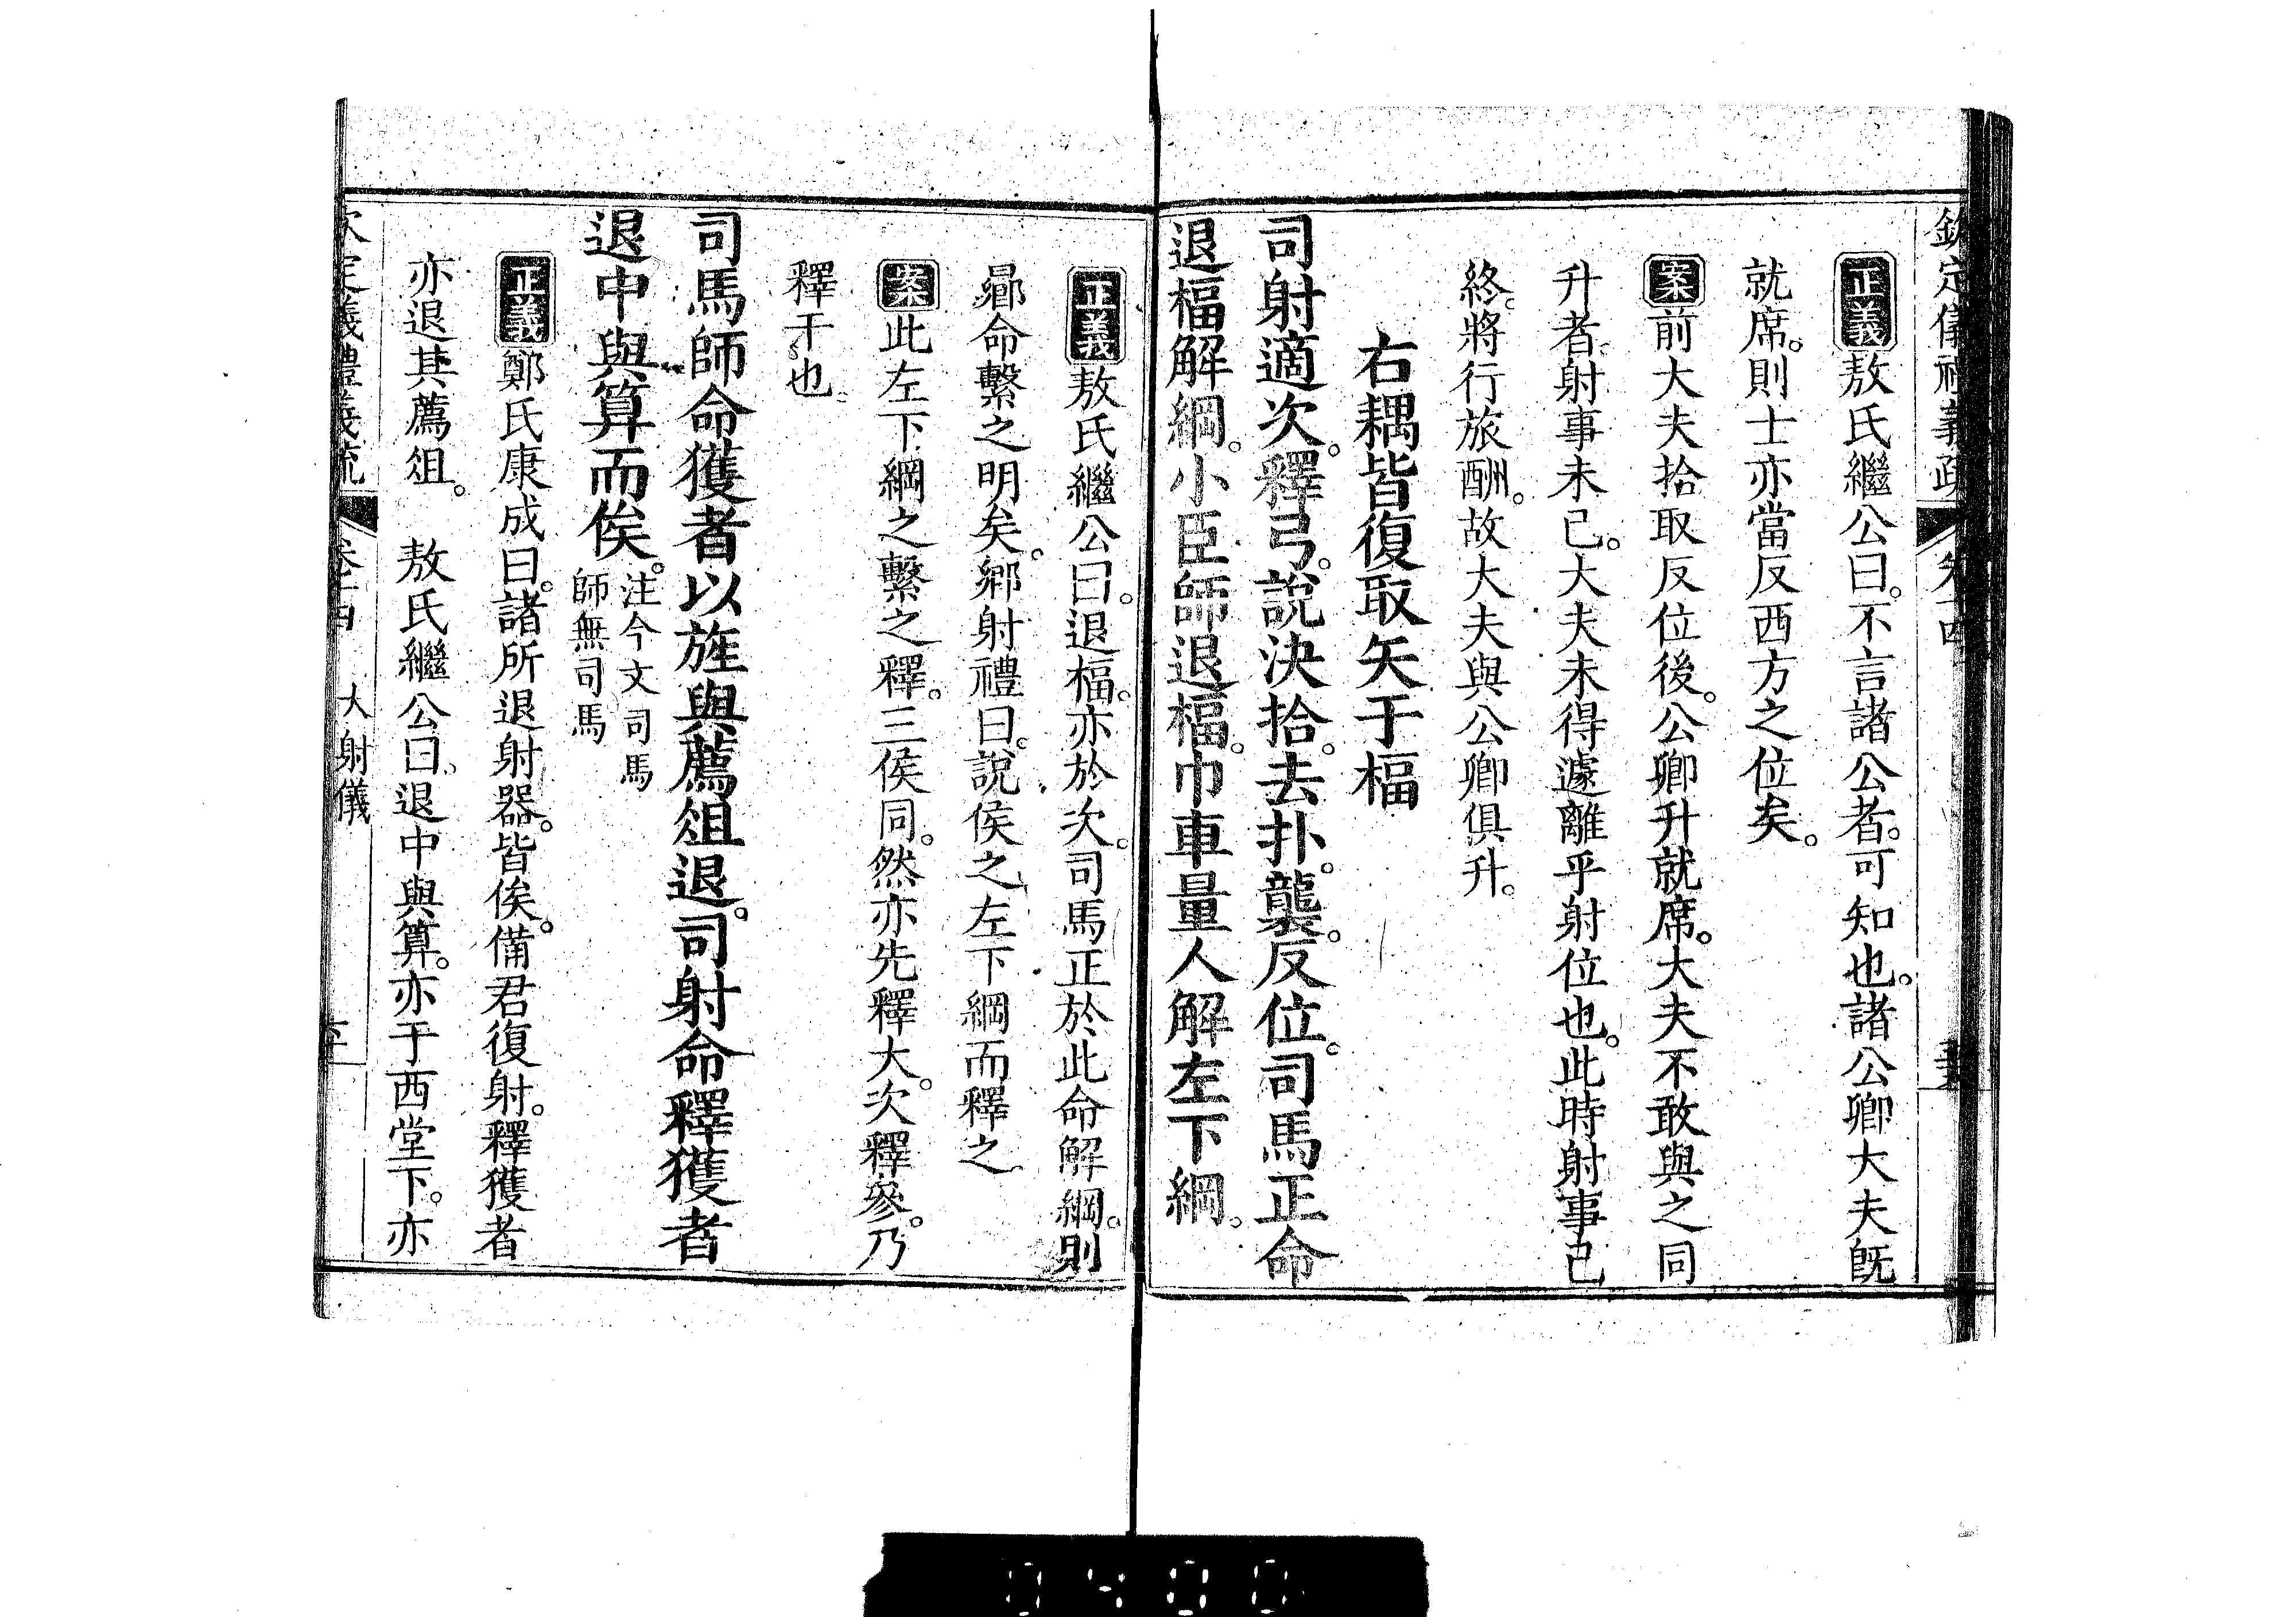 欽定儀禮義疏 卷十四
正義敖氏繼公曰。不言諸公者。可知也。諸公卿大夫既
就席。則士亦當反西方之位矣。
案前大夫拾取反位後。公卿升就席。大夫不敢與之同
升者。射事未已。大夫未得遽離乎射位也。此時射事已
終。將行旅酬。故大夫與公卿俱升。
右耦皆復取矢于楅
司射適次。釋弓。說決拾。去扑。襲。反位。司馬正命
退楅解綱。小臣師退楅。巾車量人解左下綱。
正義敖氏繼公曰。退楅。亦於次。司馬正於此命解綱。則
曏命繫之明矣。鄉射禮曰。說侯之左下綱而釋之
案此左下綱之繫之釋。三侯同。然亦先釋大。次釋參。乃
釋干也。
司馬師命獲者以旌與薦俎退。司射命釋獲者
退中與算而俟。注今文司馬
師無司馬
正義鄭氏康成曰。諸所退射器。皆俟。備君復射。釋獲者
亦退其薦俎。 敖氏繼公曰。退中與算。亦于西堂下。亦
欽定儀禮義疏 卷十四 大射儀